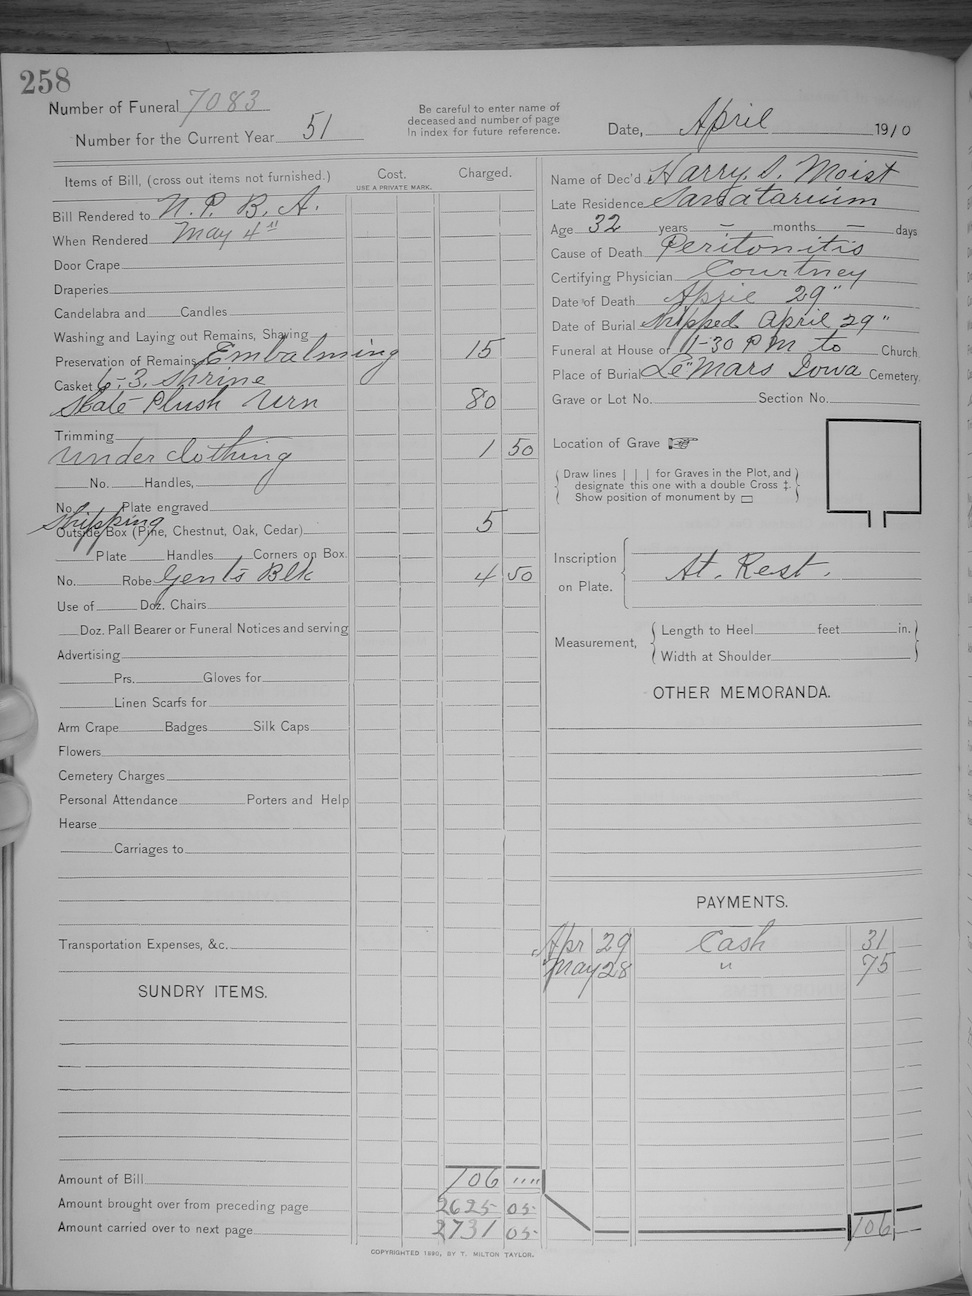 258
Number of Funeral 7083
Number for the Current Year 51
Be careful to enter name of
deceased and number of page
in index for future reference.
Date, April 1910
Items of Bill, (cross out items not furnished.) Cost. Charged.
USE A PRIVATE MARK.
Bill Rendered to N. P. B. A.
When Rendered May 4"
Door Crape
Draperies
Candelabra and Candles
Washing and Laying out Remains, Shaving
Preservation of Remains Embalming 15
Casket 6-3. Shrine
State Plush Urn 80
Trimming
Underclothing 1 50
No. Handles,
No. Plate engraved
Shipping
Outside Box (Pine, Chestnut, Oak, Cedar) 5
Plate Handles Corners on Box.
No. Robe Gent's Blk 4 50
Use of Doz. Chairs
Doz. Pall Bearer or Funeral Notices and serving
Advertising
Prs. Gloves for
Linen Scarfs for
Arm Crape Badges Silk Caps
Flowers
Cemetery Charges
Personal Attendance Porters and Help
Hearse
Carriages to
Transportation Expenses, &c.
SUNDRY ITEMS.
Amount of Bill 106 """
Amount brought over from preceding page 2625 05
Amount carried over to next page 2731 05
Name of Dec'd Harry S. Moist
Late Residence Sanatarium
Age 32 years — months — days
Cause of Death Peritonitis
Certifying Physician Courtney
Date of Death April 29"
Date of Burial Shipped April 29"
Funeral at House or 11-30 P M to Church.
Place of Burial Le"Mars Iowa Cemetery.
Grave or Lot No. Section No.
Location of Grave ☞
Draw lines | | | for Graves in the Plot, and
designate this one with a double Cross ‡.
Show position of monument by ▭
Inscription
on Plate. At. Rest.
Measurement, Length to Heel feet in.
Width at Shoulder
OTHER MEMORANDA.
PAYMENTS.
Apr 29 Cash 31
May 28 " 75
106
COPYRIGHTED 1890, BY T. MILTON TAYLOR.